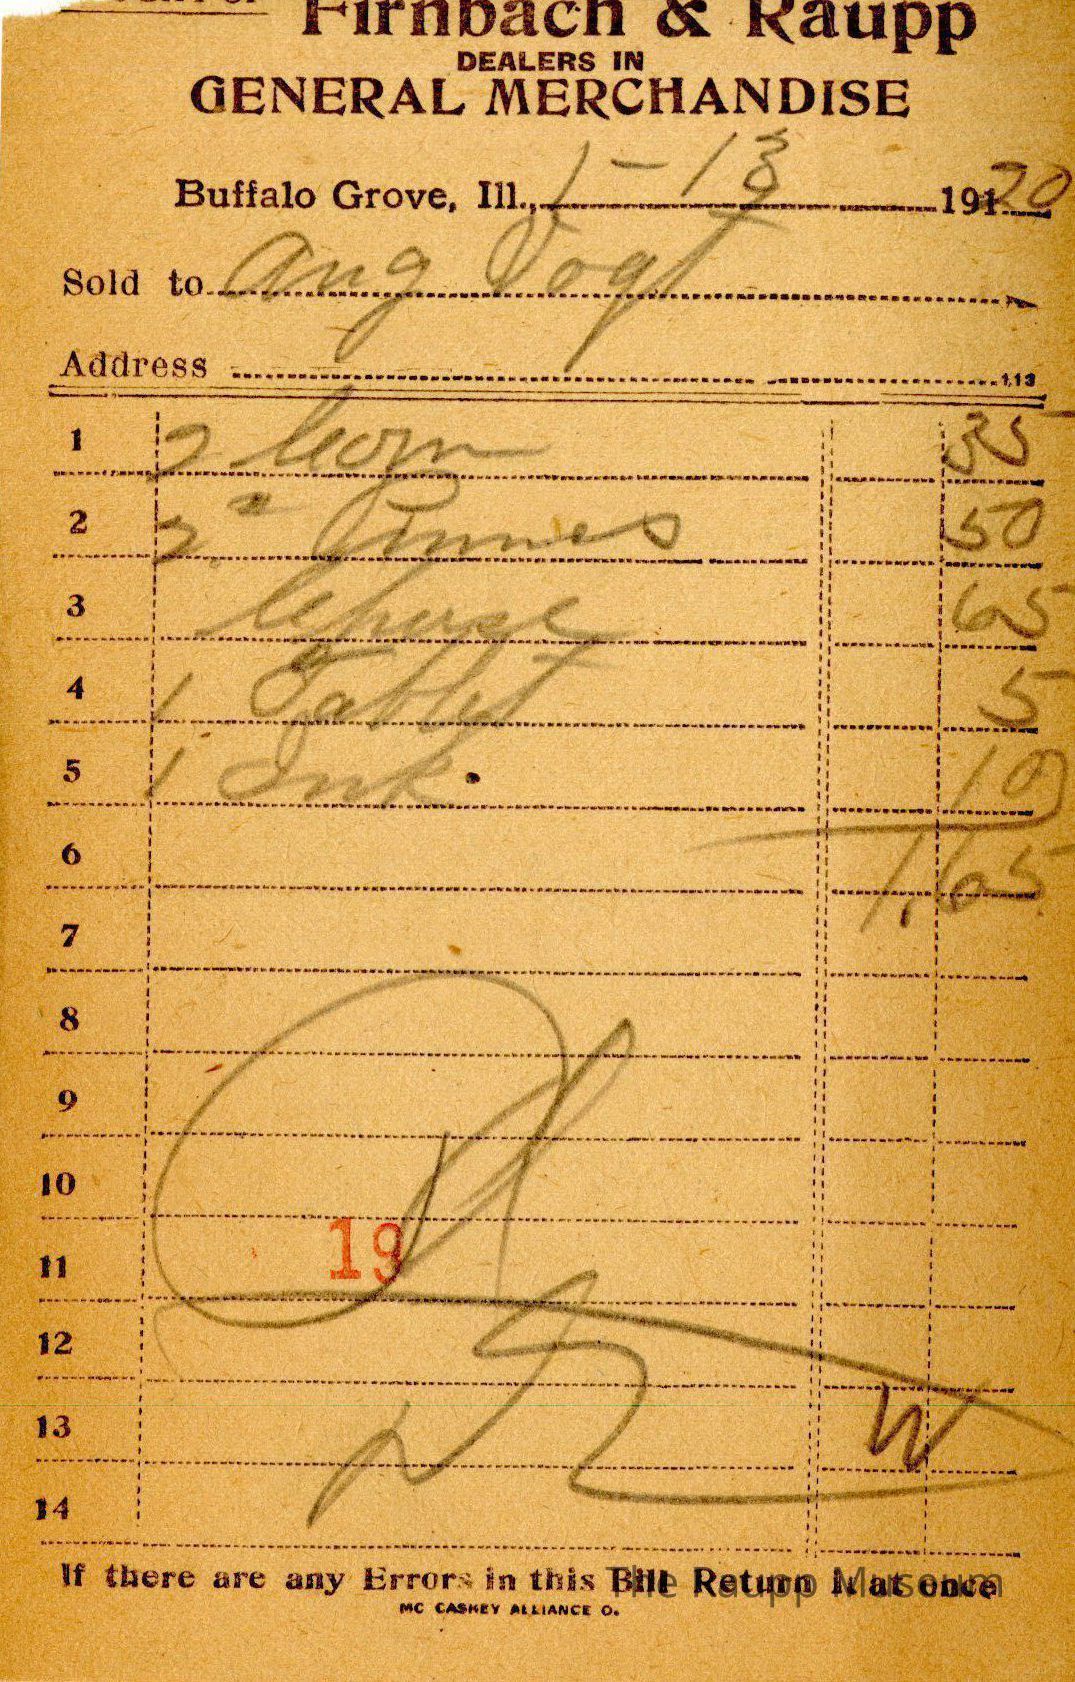 Firnbach & Raupp
DEALERS IN
GENERAL MERCHANDISE
Buffalo Grove, Ill., 1-13 191 20
Sold to Aug Vogt
Address
113
1 2 Corn 35
2 2 # Prunes 50
3 Cheese 65
4 1 Tablet 5
5 1 Ink. 10
6 1.65
7
8
9
10
19
11
12
13 W
14
If there are any Errors in this Bill Return it at once
The Raupp Museum
MC CASKEY ALLIANCE O.